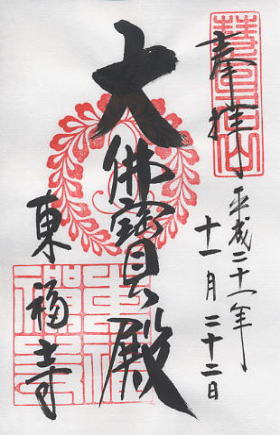 奉拝
平成二十一年
十一月二十二日
大佛寳殿
東福寺